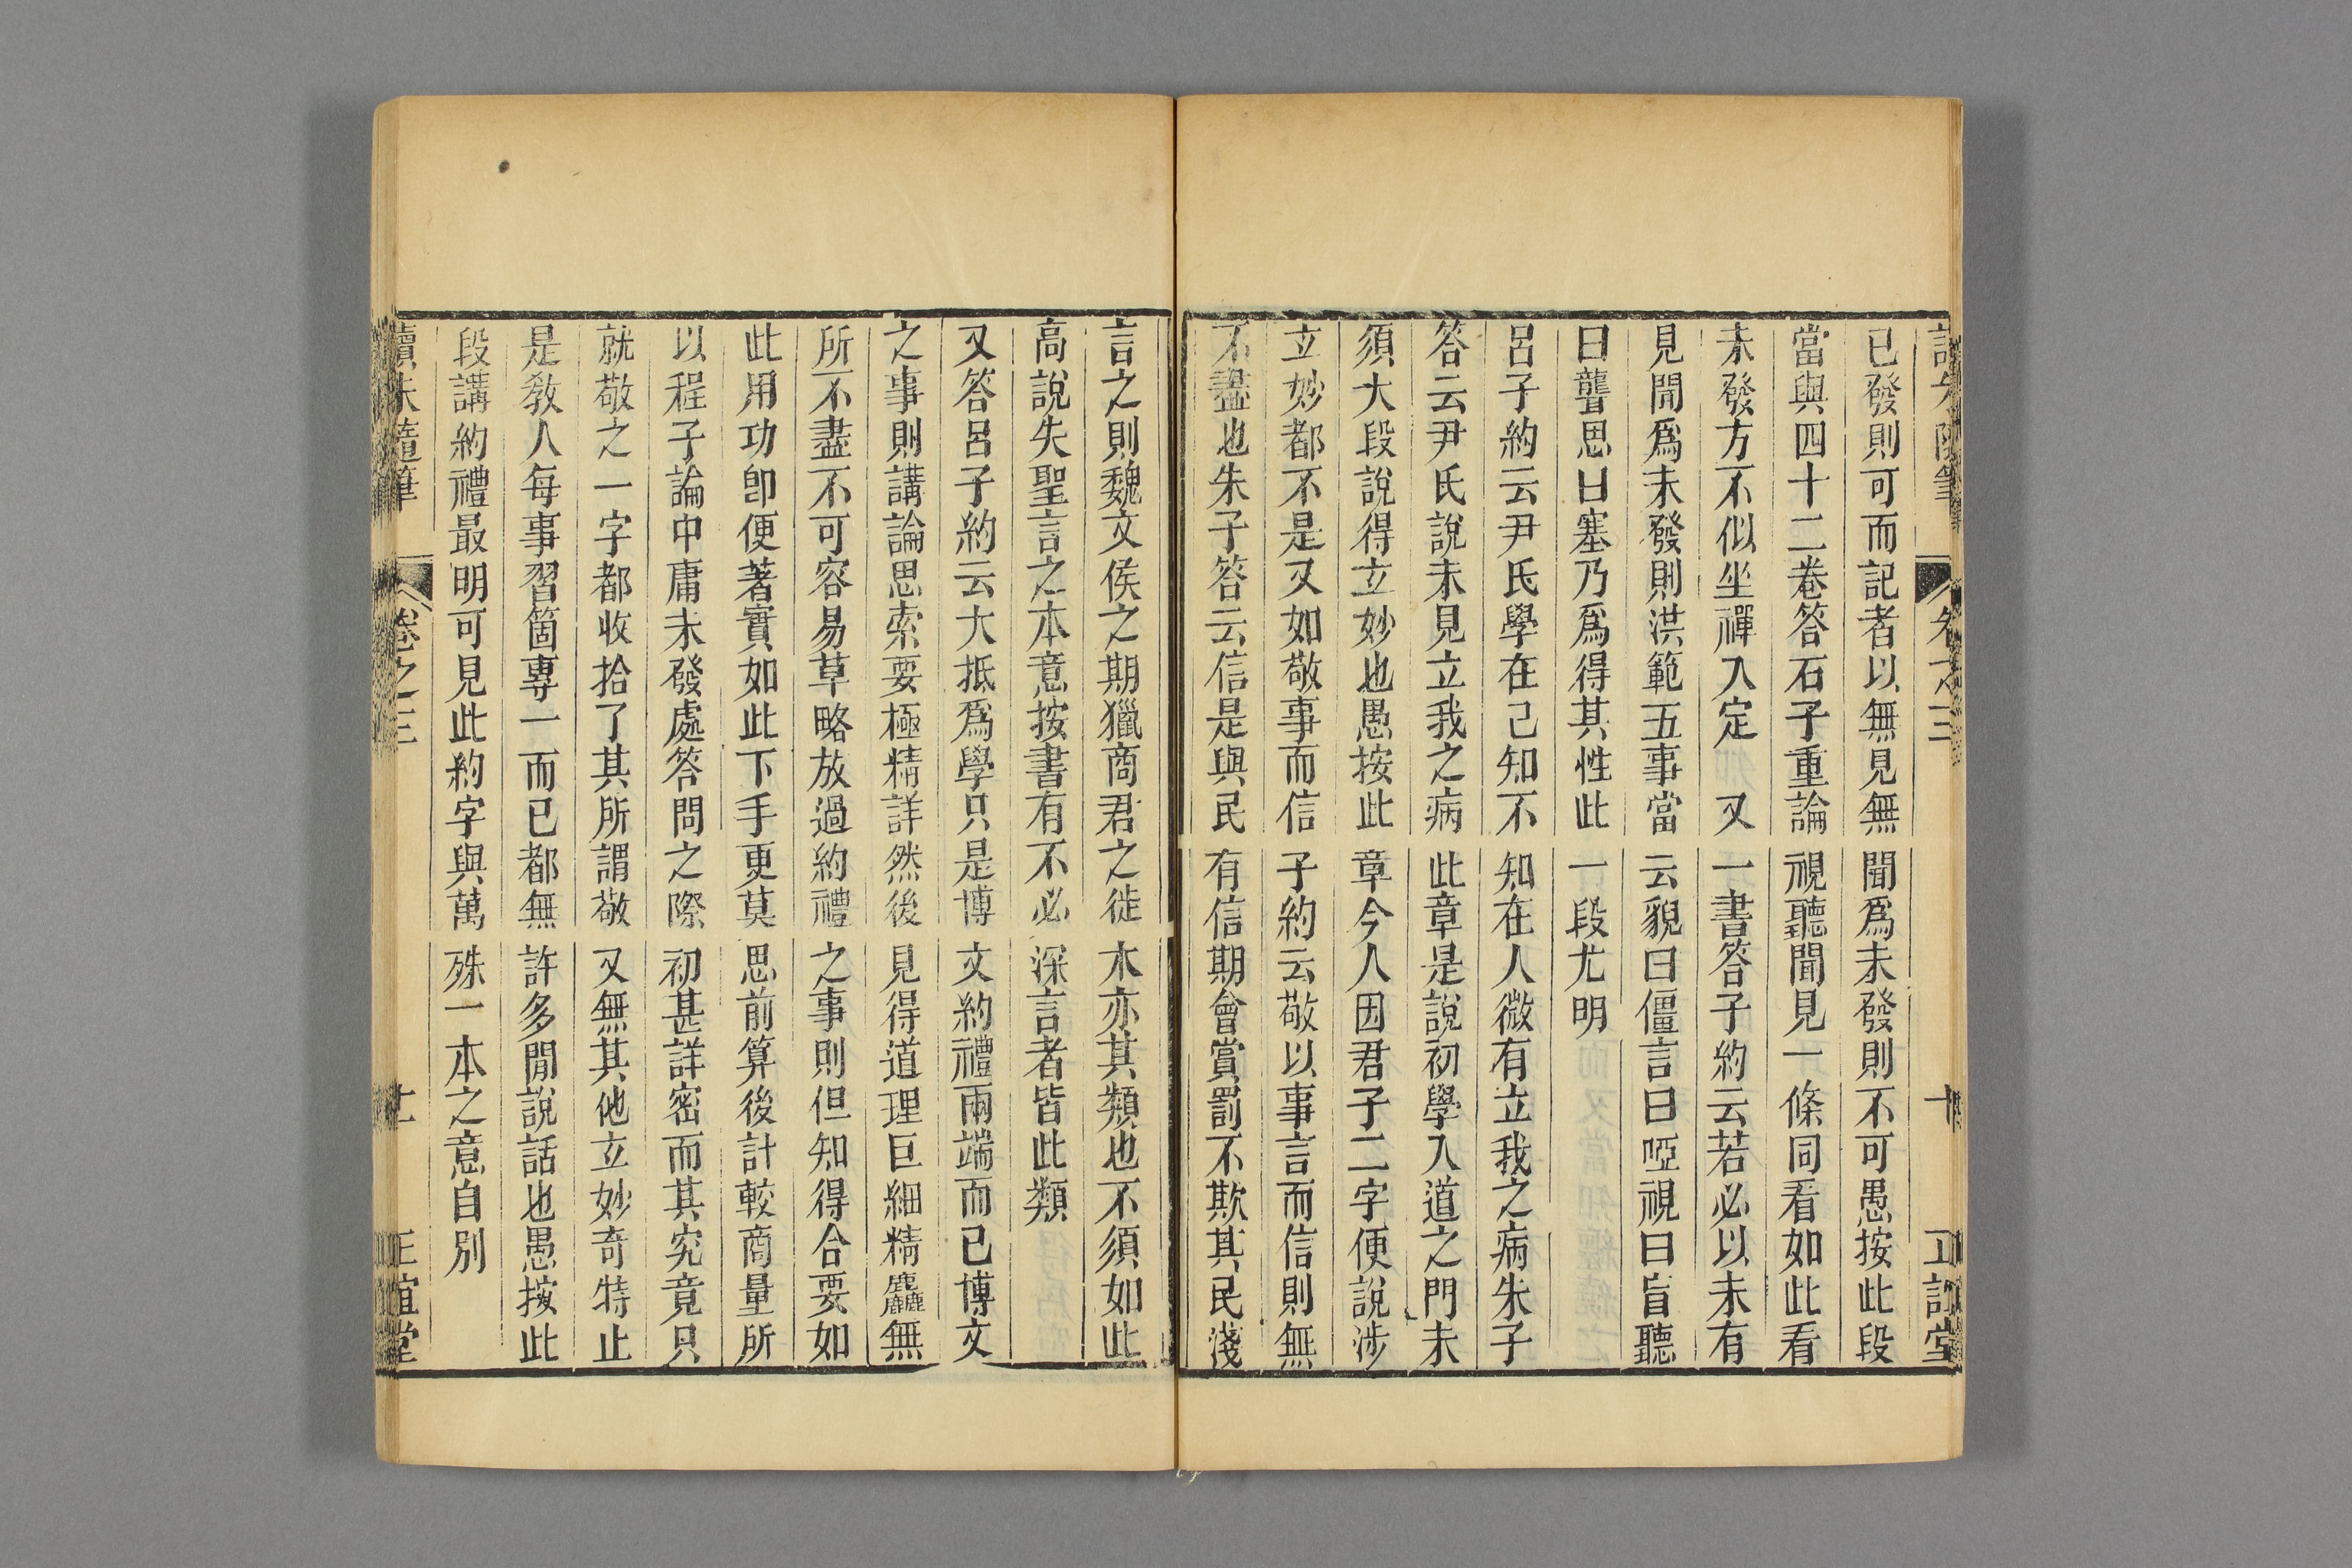 讀朱隨筆 卷之三 十 正誼堂
已發則可而記者以無見無聞爲未發則不可愚按此段
當與四十二卷答石子重論視聽聞見一條同看如此看
未發方不似坐禪入定 又一書答子約云若必以未有
見聞爲未發則洪範五事當云貌曰僵言曰啞視曰盲聽
曰聾思曰塞乃爲得其性此一段尤明
呂子約云尹氏學在己知不知在人微有立我之病朱子
答云尹氏說未見立我之病此章是說初學入道之門未
須大段說得立妙也愚按此章今人因君子二字便說涉
立妙都不是又如敬事而信子約云敬以事言而信則無
不盡也朱子答云信是與民有信期會賞罰不欺其民淺
言之則魏文侯之期獵商君之徙木亦其類也不須如此
高說失聖言之本意按書有不必深言者皆此類
又答呂子約云大抵爲學只是博文約禮兩端而已博文
之事則講論思索要極精詳然後見得道理巨細精麤無
所不盡不可容易草略放過約禮之事則但知得合要如
此用功卽便著實如此下手更莫思前算後計較商量所
以程子論中庸未發處答問之際初甚詳密而其究竟只
就敬之一字都收拾了其所謂敬又無其他立妙奇特止
是敎人每事習箇專一而已都無許多閒說話也愚按此
段講約禮最明可見此約字與萬殊一本之意自別
讀朱隨筆 卷之三 十一 正誼堂